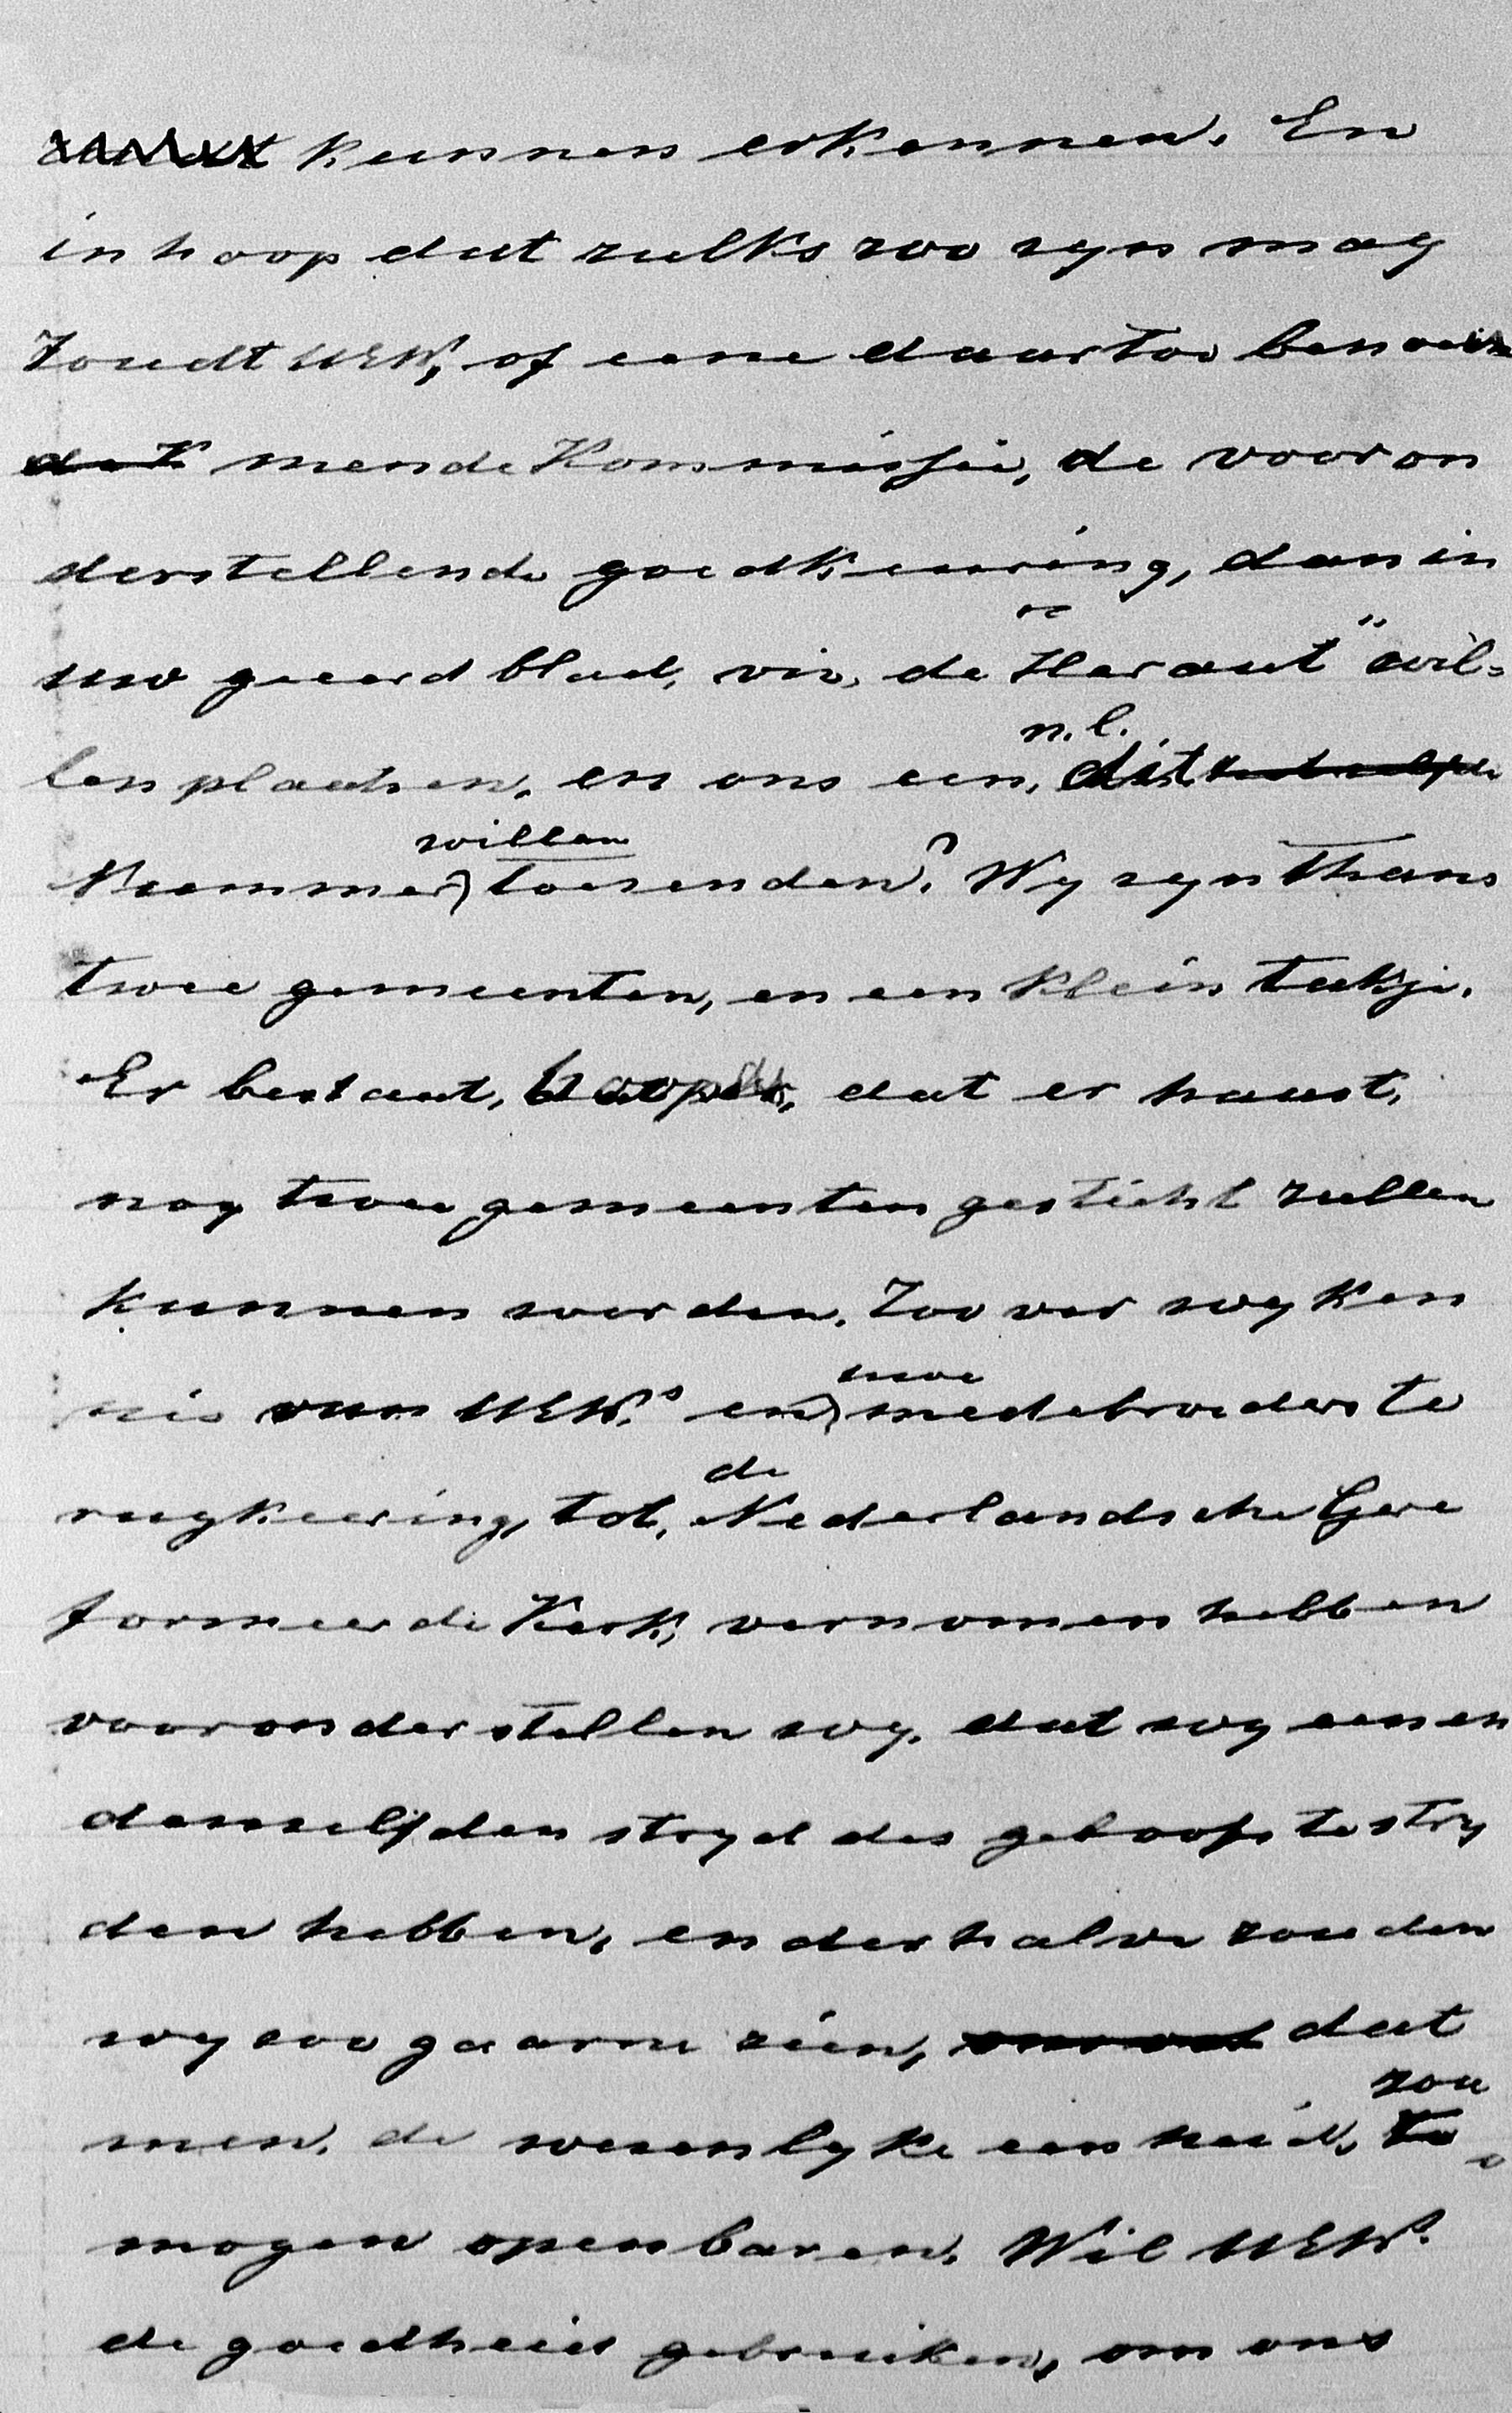 kunnen erkennen. En
in hoop dat zulks zoo zyn mag
Zoudt UEW, of eene daartoe benoe
mende Kommissie, de vooron
derstellende goedkeuring, dan in
uw geeerd blad, viz, de Heraut" wil=
n.l.
len plaatsen, en ons een, dit
willen
Nummer) toezenden? Wy zyn thans
twee gemeenten, en een klein takje.
Er bestaat, hoope, dat er haast,
nog twee gemeenten gesticht zullen
kunnen worden. Zoo ver wy ken
uwe
nis van UEW.s en) medebroeders te
de
rugkeering, tot, Nederlandsche Gere
formeerde Kerk, vernomen hebben
vooronderstellen wy, dat wy eenen
denzelfden stryd des geloofs te stry
den hebben, en derhalve zouden
wy zoo gaarne zien, dat
zou
men, de wezenlyke eenheid,
mogen openbaren. Wil UEW.
de goedheid gebruiken, om ons